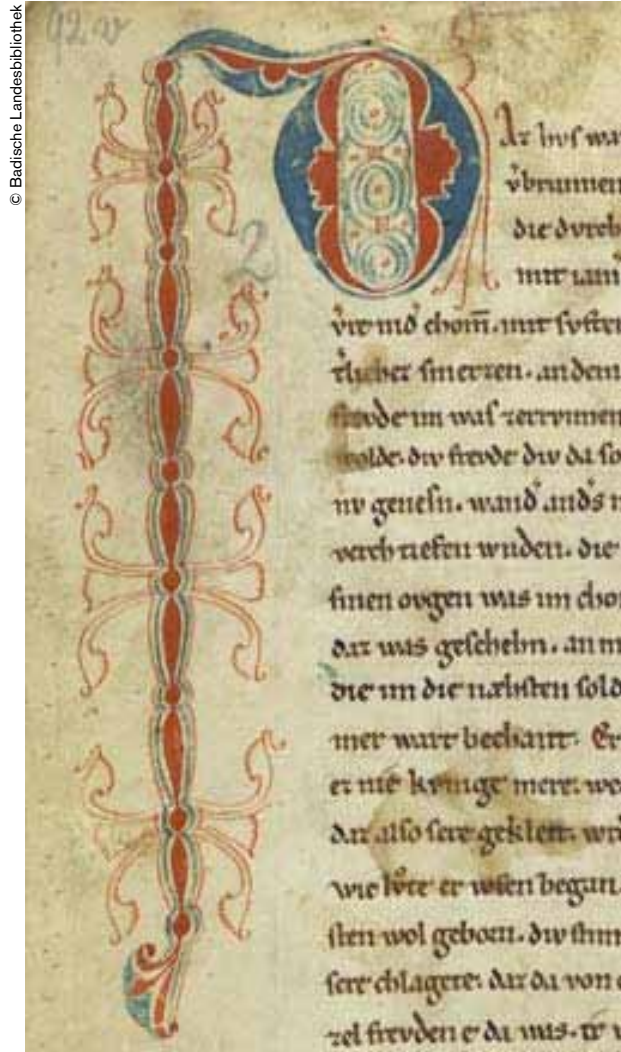 © Badische Landesbibliothek
92v
2
Daz hvſ wa
v̓brunnen
die dvrch
mit iam
chom̄. mit ſvften
tlicher ſmerzen. an dem
frevde im waſ zerrvnnen
wolde. div frevde div da ſo
nv geneſn. wand
verch tiefen wnden. die
ſinen ovgen was im cho
daz was geſchehn. an m
die im die næhſten ſold
mer wart bechant. Er
er nie kvnige mere. wo
daz alſo ſere gekleit.
wie lv̊te er wfen began.
ſten wol geborn. div ſtim
ſere chlagete. daz da von e
zel frevden e da was. ir